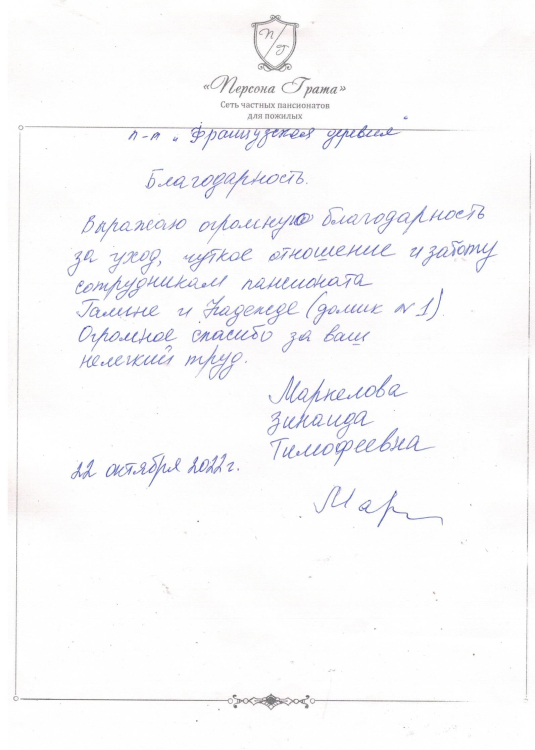 П Г
«Персона Грата»
Сеть частных пансионатов
для пожилых
п-т „Французская деревня"
Благодарность.
Выражаю огромную благодарность
за уход, чуткое отношение и заботу
сотрудникам пансионата
Галине и Надежде (домик №1).
Огромное спасибо за ваш
нелегкий труд.
Маркелова
Зинаида
Тимофеевна
22 октября 2022г.
Мар